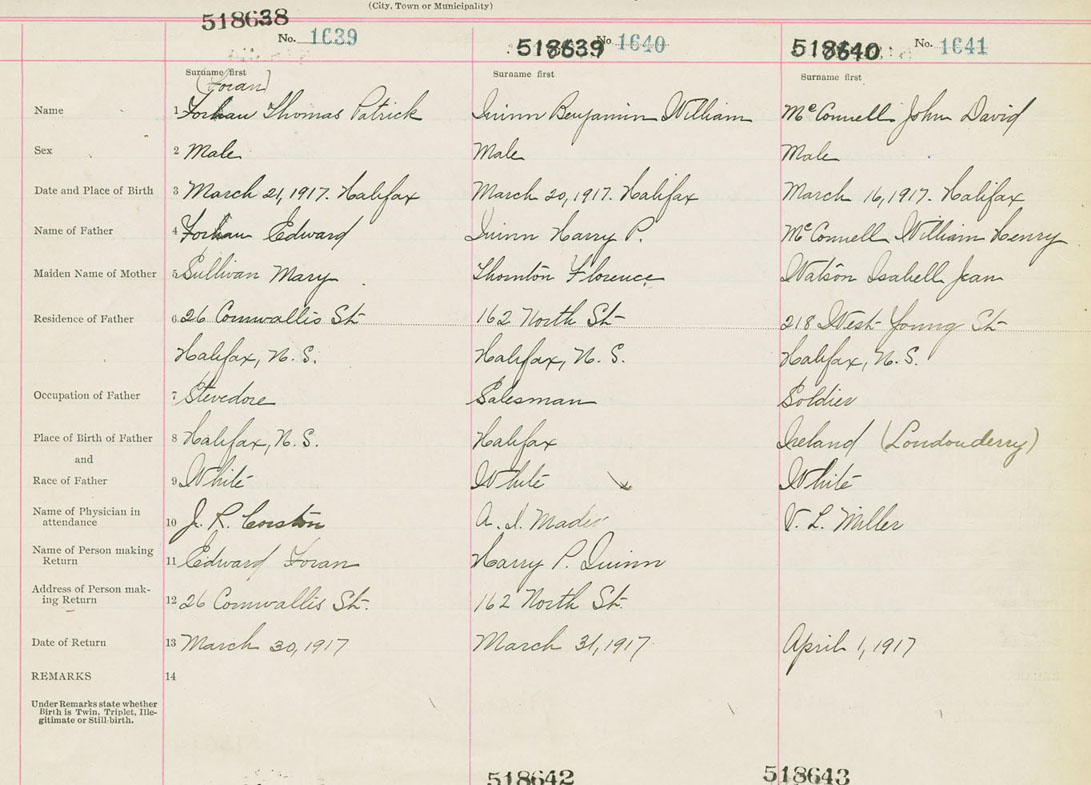 (City, Town or Municipality)
518638 518639 518640
No. 1639 No 1640 No. 1641
Surname first Surname first Surname first
(Foran)
Name 1 Forhan Thomas Patrick Quinn Benjamin William McConnell John David
Sex 2 Male Male Male
Date and Place of Birth 3 March 21, 1917. Halifax March 20, 1917. Halifax March 16, 1917. Halifax
Name of Father 4 Forhan Edward Quinn Harry P. McConnell William Henry
Maiden Name of Mother 5 Sullivan Mary Thornton Florence Watson Isabell Jean
Residence of Father 6 26 Cornwallis St 162 North St 218 West Young St
Halifax, N.S. Halifax, N.S. Halifax, N.S.
Occupation of Father 7 Stevedore Salesman Soldier
Place of Birth of Father 8 Halifax, N.S. Halifax Ireland (Londonderry)
and
Race of Father 9 White White White
Name of Physician in
attendance 10 J. R. Corston A. I. Mader V. L. Miller
Name of Person making
Return 11 Edward Foran Harry P. Quinn
Address of Person mak-
ing Return 12 26 Cornwallis St. 162 North St.
Date of Return 13 March 30, 1917 March 31, 1917 April 1, 1917
REMARKS 14
Under Remarks state whether
Birth is Twin, Triplet, Ille-
gitimate or Still-birth.
518642 518643